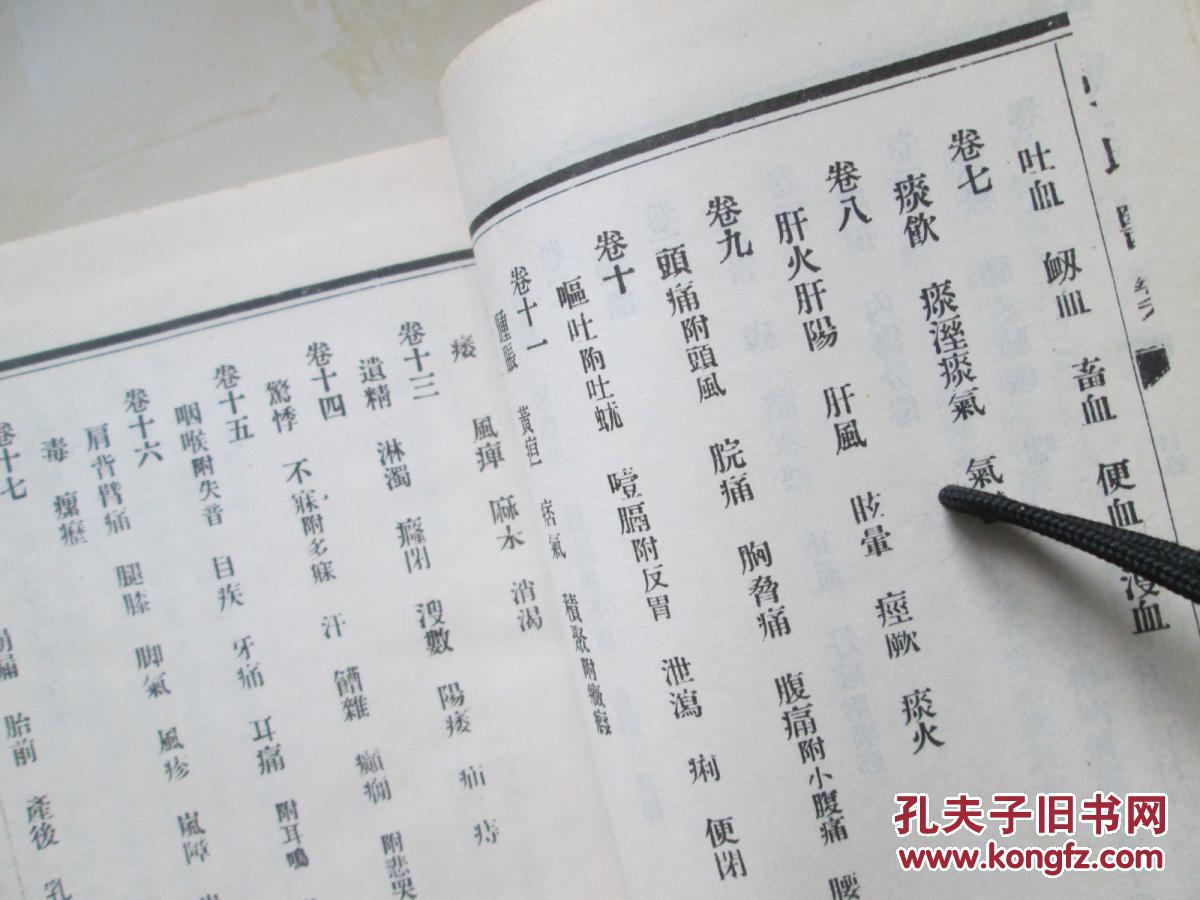 吐血 衂血 畜血 便血 溲血
卷七
痰飲 痰溼痰氣 氣
卷八
肝火肝陽 肝風 眩暈 痙厥 痰火
卷九
頭痛附頭風 脘痛 胸脅痛 腹痛附小腹痛 腰
卷十
嘔吐附吐蚘 噎膈附反胃 泄瀉 痢 便閉
卷十一
腫脹 黃疸 痞氣 積聚附癥瘕
痿 風痺 麻木 消渴
卷十三
遺精 淋濁 癃閉 溲數 陽痿 疝 痔
卷十四
驚悸 不寐附多寐 汗 嘈雜 癲癇 附悲哭
卷十五
咽喉附失音 目疾 牙痛 耳痛 附耳鳴
卷十六
肩背臂痛 腿膝 脚氣 風疹 嵐障
毒 瘰癧
卷十七
胎前 產後 乳
孔夫子旧书网
www.kongfz.com